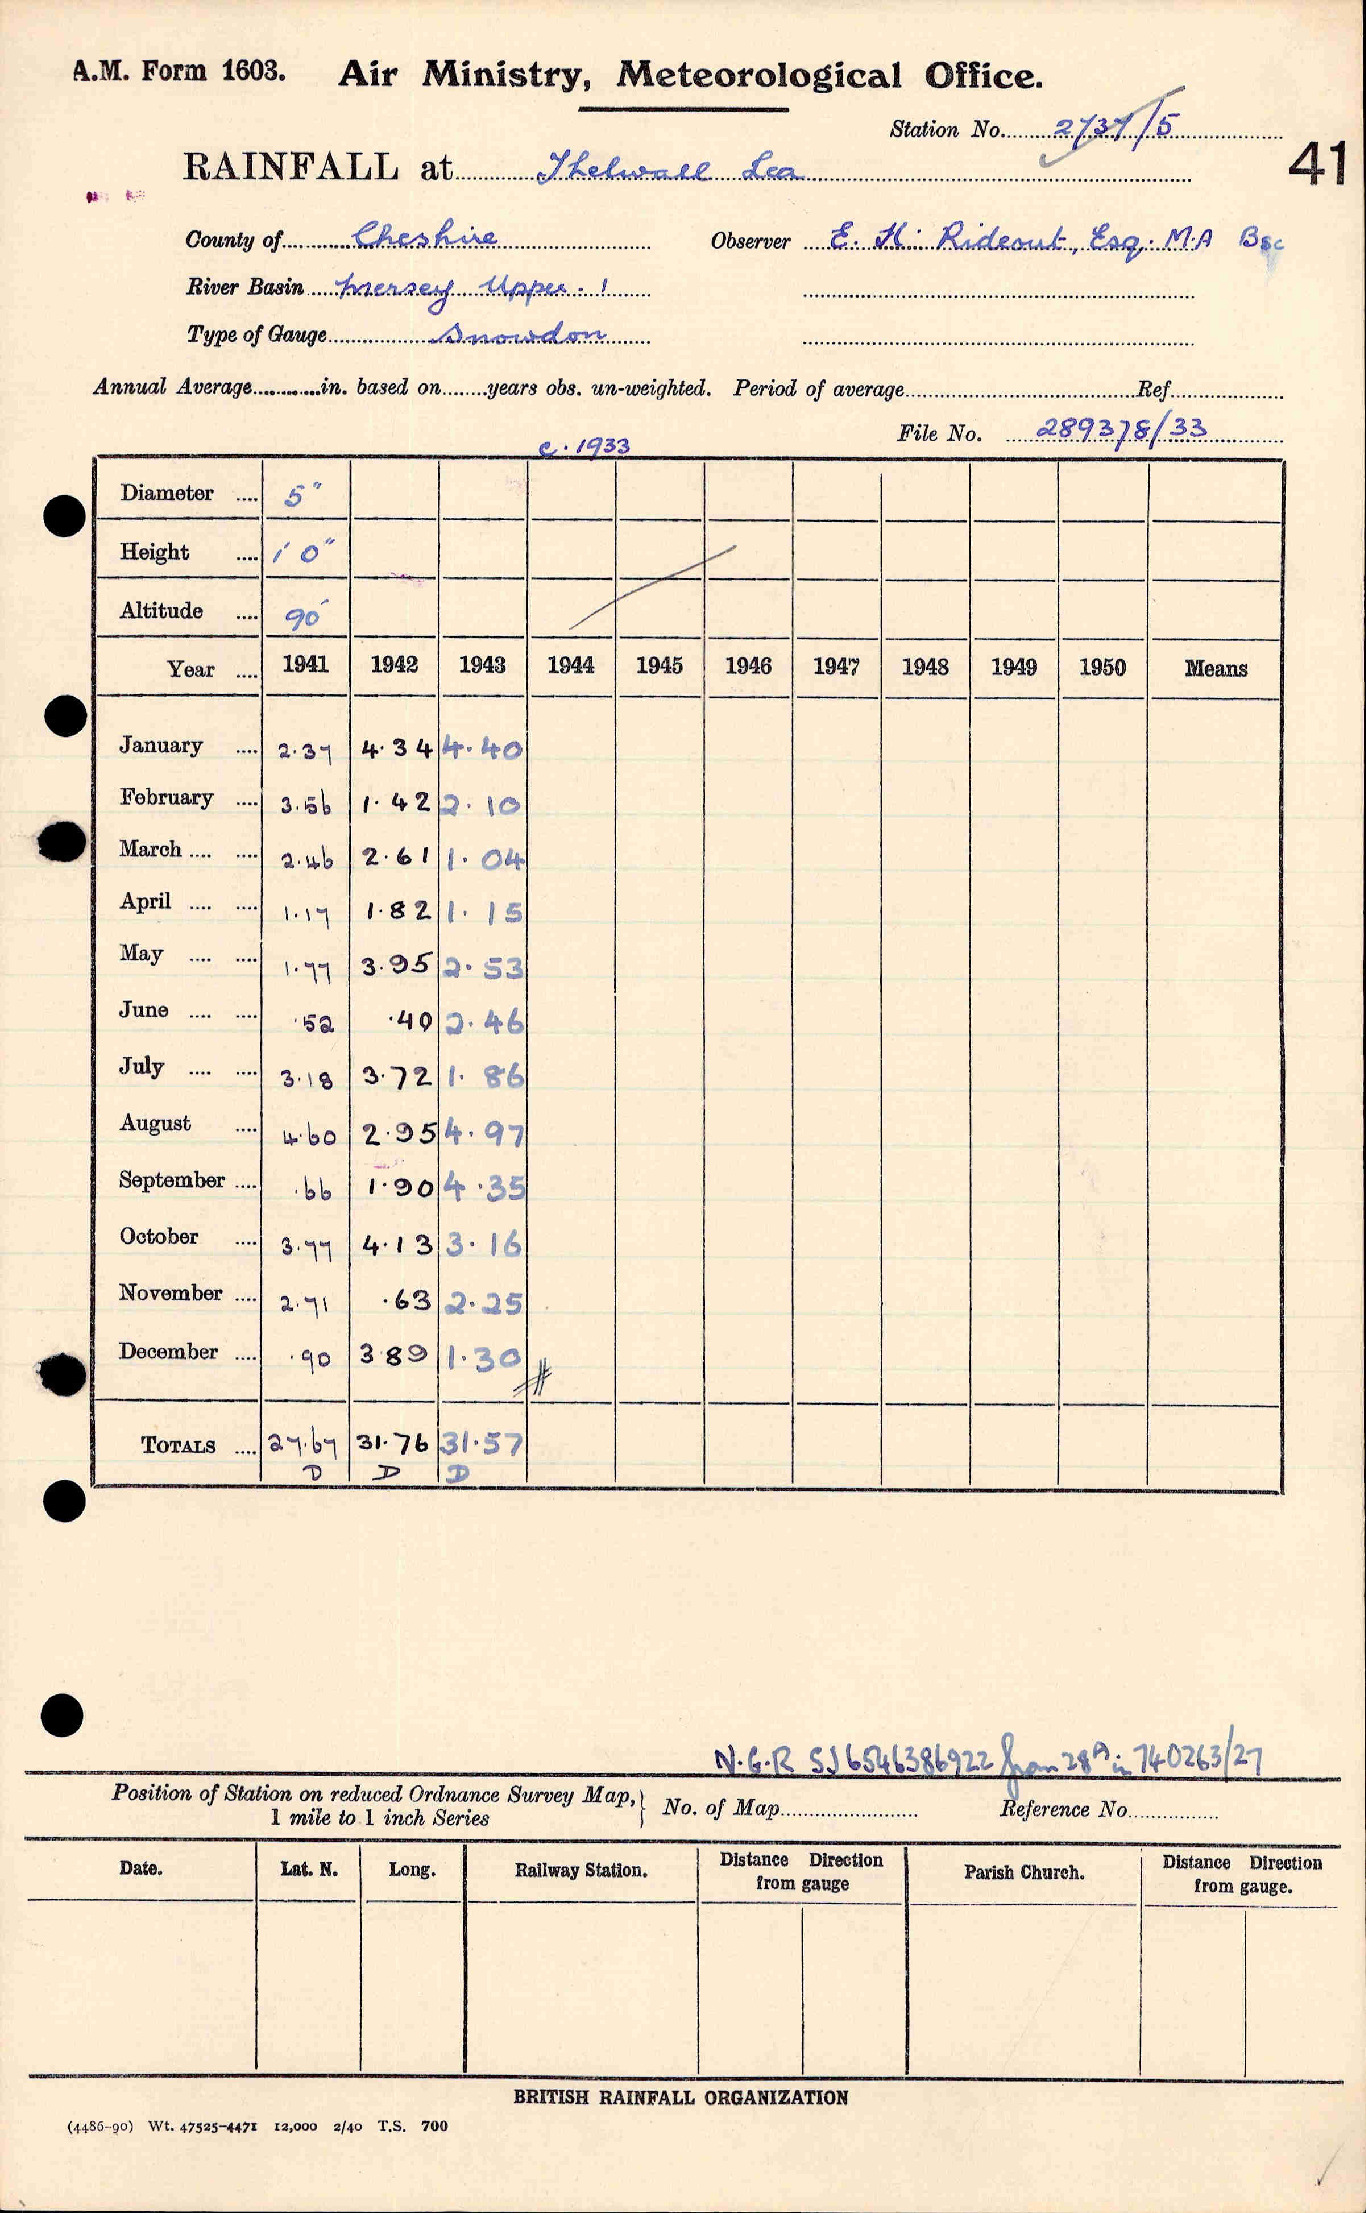 A.M. Form 1603. Air Ministry, Meteorological Office.
Station No. 2737/5
41
RAINFALL at Thelwall Lea
County of Cheshire Observer E. H. Rideout, Esq. M.A Bsc
River Basin Mersey Upper. 1
Type of Gauge Snowdon
Annual Average............in. based on........years obs. un-weighted. Period of average........Ref........
File No. 289378/33
c. 1933
Diameter .... 5"
Height .... 1' 0"
Altitude .... 90'
Year .... 1941 1942 1943 1944 1945 1946 1947 1948 1949 1950 Means
January .... 2.37 4.34 4.40
February .... 3.56 1.42 2.10
March .... .... 2.46 2.61 1.04
April .... .... 1.17 1.82 1.15
May .... .... 1.77 3.95 2.53
June .... .... .52 .40 2.46
July .... .... 3.18 3.72 1.86
August .... 4.60 2.95 4.97
September .... .66 1.90 4.35
October .... 3.77 4.13 3.16
November .... 2.71 .63 2.25
December .... .90 3.89 1.30
TOTALS .... 27.67 31.76 31.57
D D D
N.G.R SJ6546386922 from 28A in 740263/27
Position of Station on reduced Ordnance Survey Map, 1 mile to 1 inch Series } No. of Map........ Reference No........
Date. Lat. N. Long. Railway Station. Distance Direction from gauge Parish Church. Distance Direction from gauge.
BRITISH RAINFALL ORGANIZATION
(4486-90) Wt. 47525-4471 12,000 2/40 T.S. 700